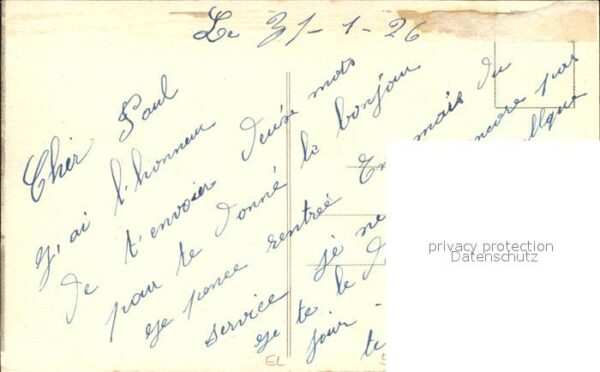 Le 31-1-26
Cher Paul
j,ai l'honneur
de t'envoier deuse mots
pour te donné le bonjour
je pence rentrée En mais du
service je ne encore pas
je te le
jour -
te
privacy protection
Datenschutz
EL